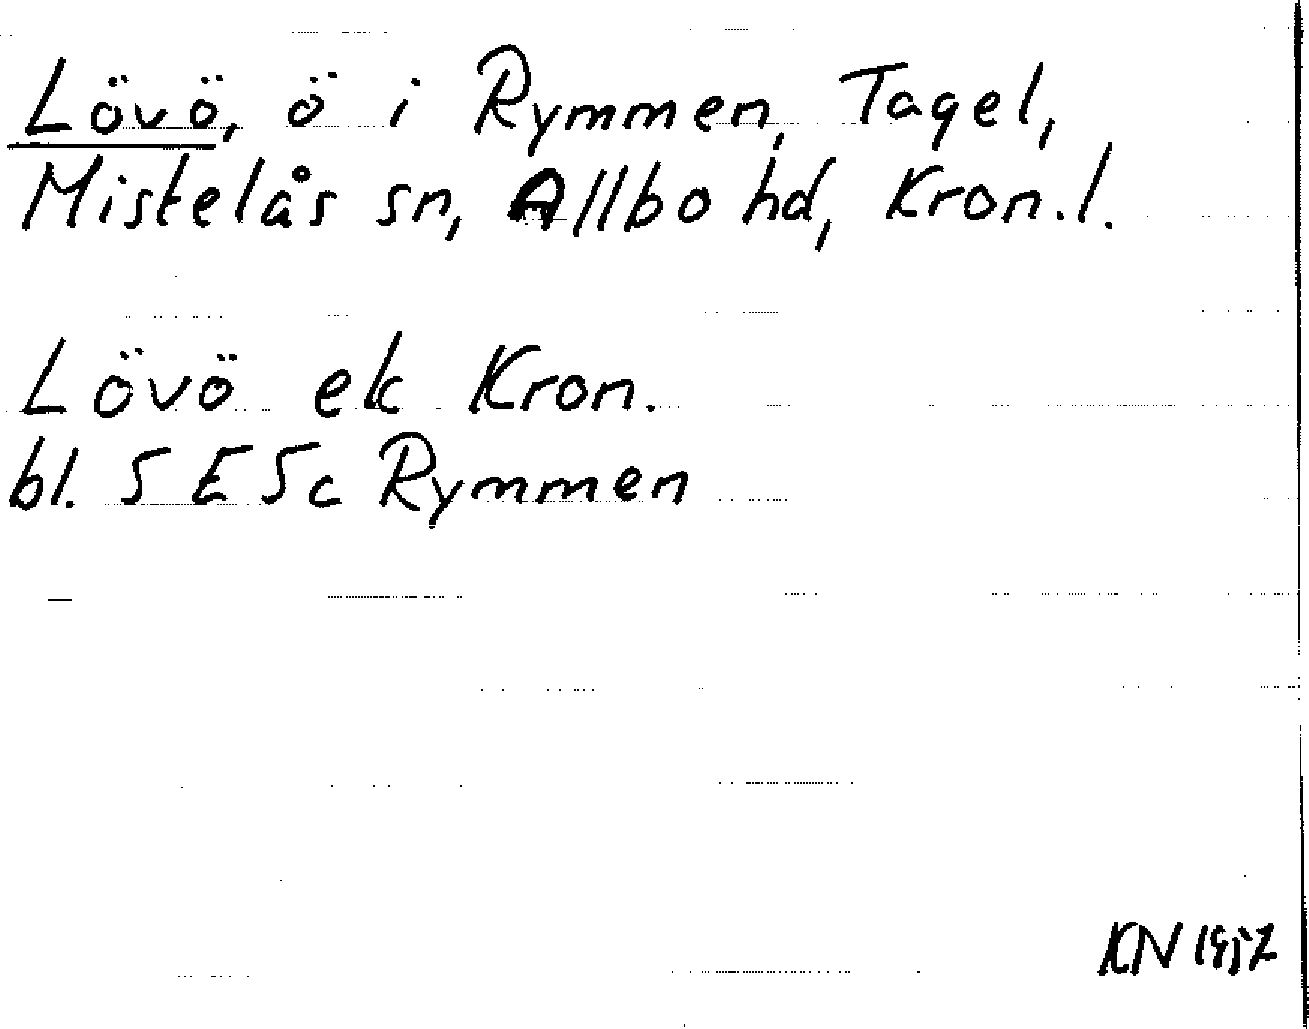 Lövö, ö i Rymmen, Tagel,
Mistelås sn, Allbo hd, Kron.l.
Lövö ek Kron.
bl. 5 E 5c Rymmen
KN